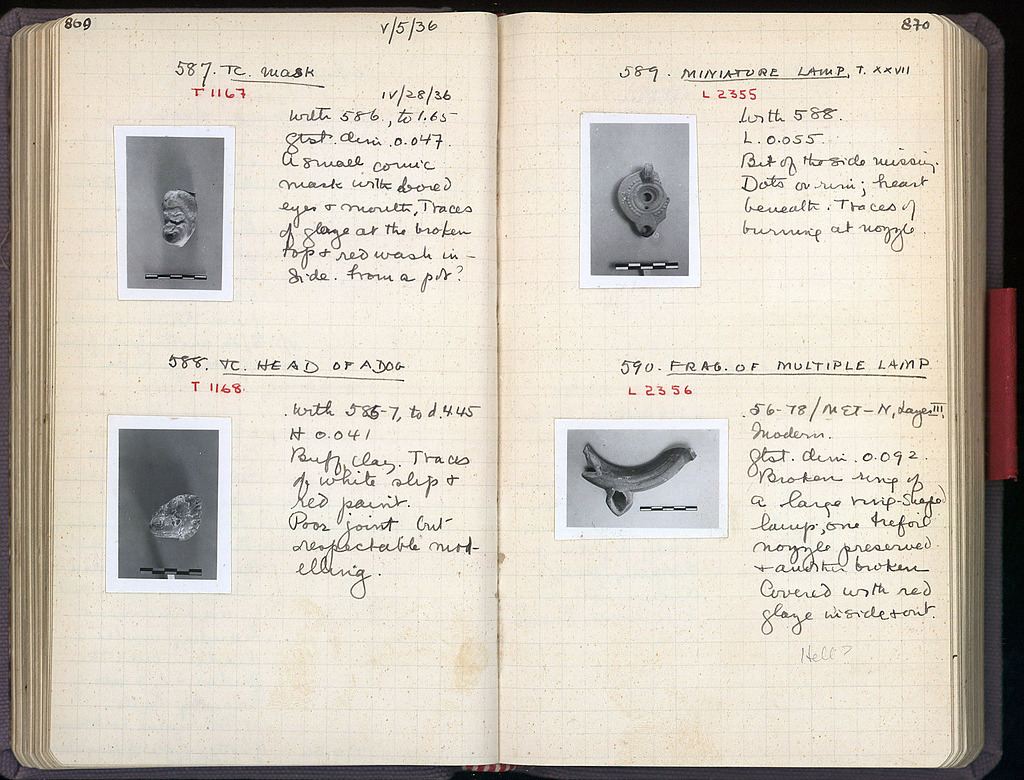 869
V/5/36
587. TC. MASK
T 1167
IV/28/36
With 586, to 1.65
gtst. dim. 0.047.
A small comic
mask with bored
eyes & mouth, Traces
of glaze at the broken
top & red wash in-
side. From a pot?
588. TC. HEAD OF A DOG
T 1168
With 586-7, to d. 4.45
H 0.041
Buff clay. Traces
of white slip &
red paint.
Poor joint but
respectable mod-
elling.
870
589. MINIATURE LAMP, T. XXVII
L 2355
With 588.
L. 0.055.
Bit of the side missing.
Dots on rim; heart
beneath. Traces of
burning at nozzle.
590. FRAG. OF MULTIPLE LAMP
L 2356
56-78/MET-N, Layer III.
Modern.
gtst. dim. 0.092.
Broken ring of
a large ring-shaped
lamp, one trefoil
nozzle preserved
& another broken
Covered with red
glaze inside & out.
Hell?